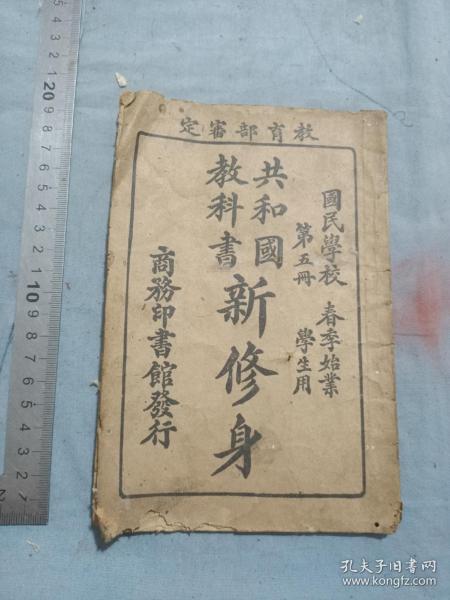 教育部審定
國民學校 春季始業
第五冊 學生用
共和國
教科書
新修身
商務印書館發行
孔夫子旧书网
www.kongfz.com
5 4 3 2 1 20 9 8 7 6 5 4 3 2 1 10 9 8 7 6 5 4 3 2